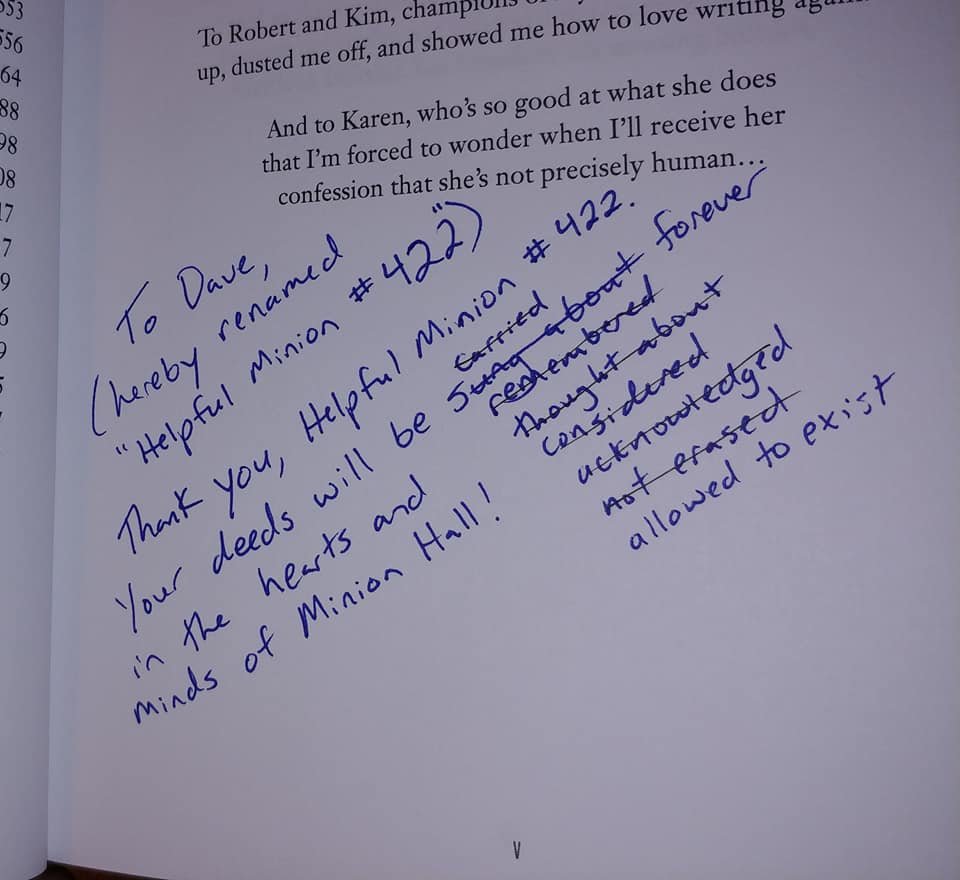 553
556
64
88
98
08
17
7
9
6
9
To Robert and Kim, champions
up, dusted me off, and showed me how to love writing again
And to Karen, who's so good at what she does
that I'm forced to wonder when I'll receive her
confession that she's not precisely human...
To Dave,
(hereby renamed
"Helpful Minion #422")
Thank you, Helpful Minion #422.
Your deeds will be sung about forever
carried
remembered
thought about
considered
acknowledged
not erased
allowed to exist
in the hearts and
minds of Minion Hall!
v